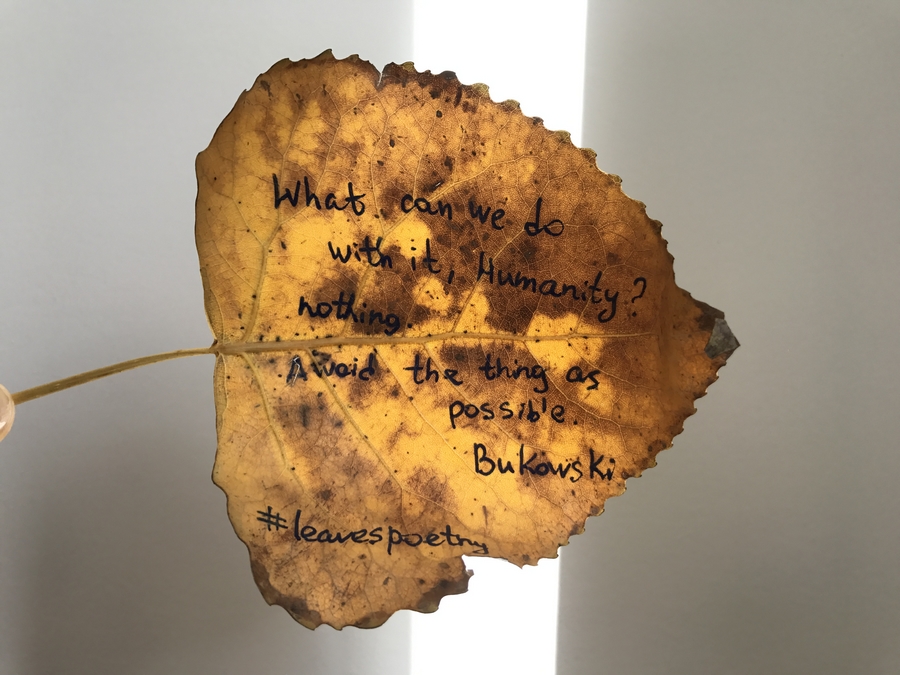 What can we do
with it, Humanity?
nothing.
Avoid the thing as
possible.
Bukowski
#leavespoetry